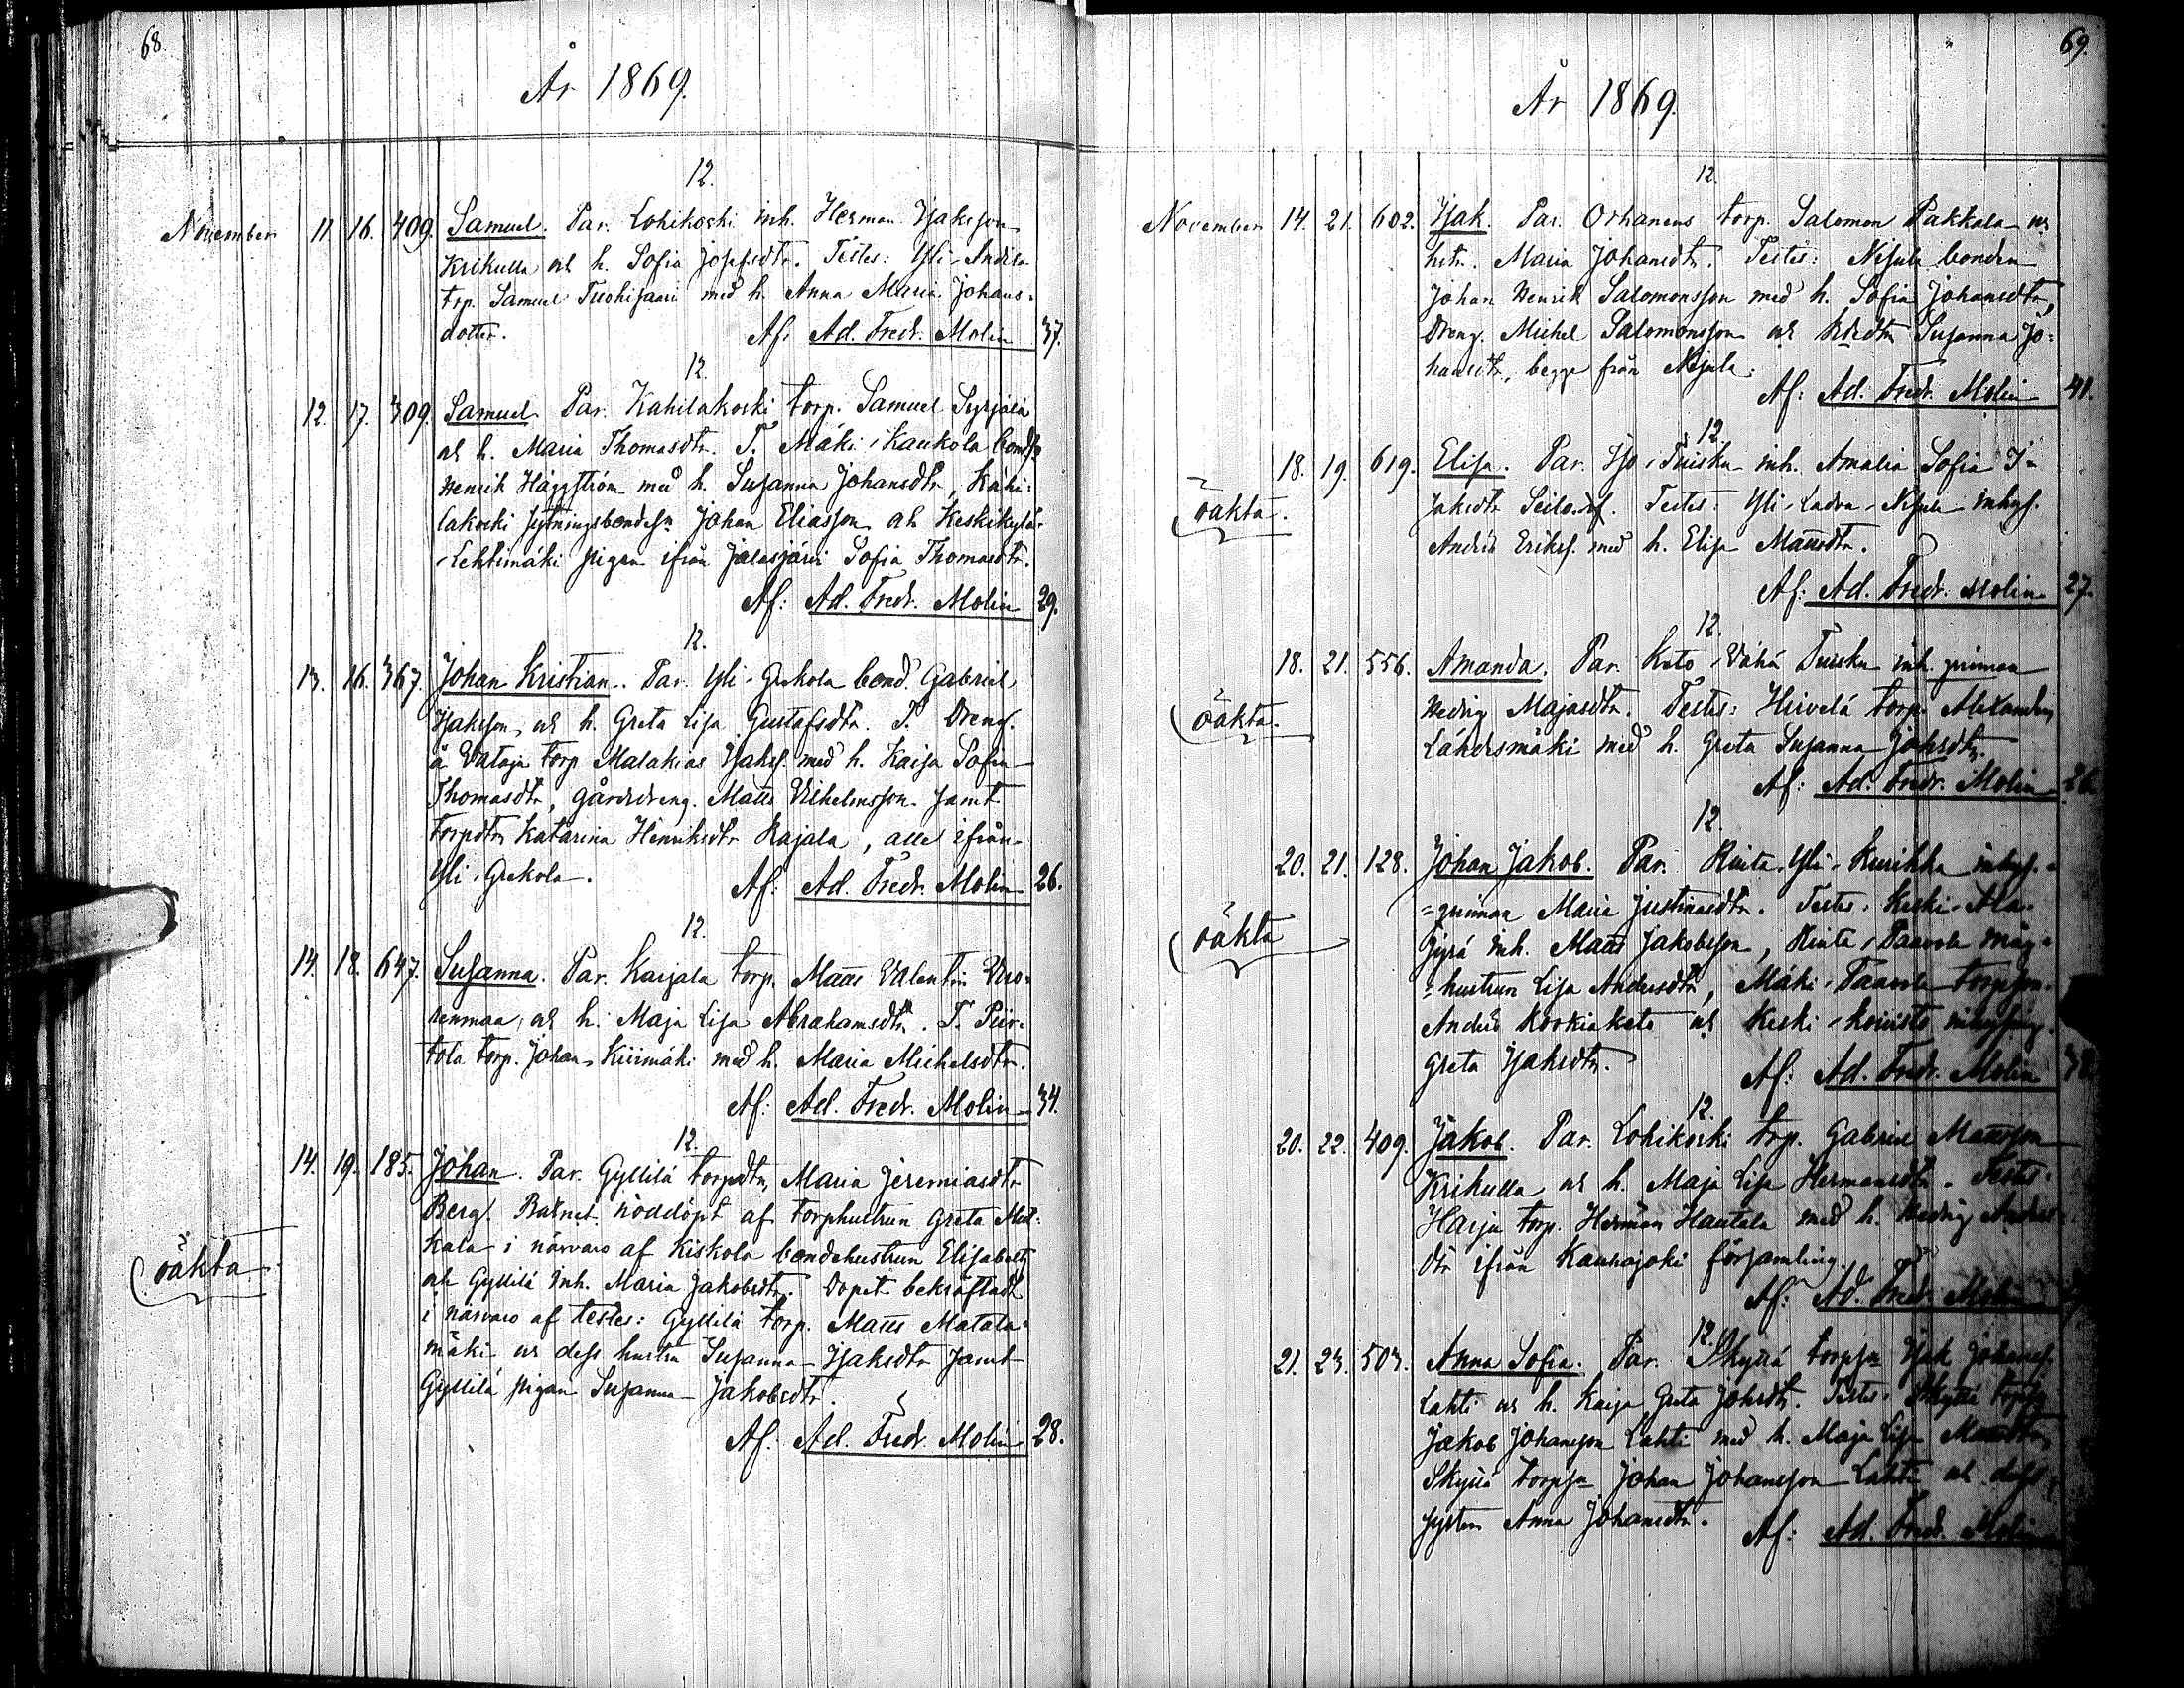 68
År 1869.
12.
November 11 16. 409. Samuel. Par. Lohikoski inh. Herman Isaksson
Krikulla och h. Sofia Josefsdtr. Testes: Yli-Andila
trp. Samuel Tuohisaari med h. Anna Maria Johans-
dotter. Af: Ad. Fredr. Molin 37.
12.
12. 17. 309. Samuel. Par. Kahilakoski torp. Samuel Syrjälä
och h. Maria Thomasdtr. T. Mäki-Kaukola bondes.
Henrik Häggström med h. Susanna Johansdtr, Kahi-
lakoski sytningsbondesn Johan Eliasson och Keskikylä-
-Lehtimäki pigan ifrån Jalasjärvi Sofia Thomasdtr.
Af: Ad. Fredr. Molin 29.
12.
13. 16. 367. Johan Kristian. Par. Yli-Grekola bond. Gabriel
Isaksson, och h. Greta Lisa Gustafsdtr. T. Dreng.
å Vataja torp Malakias Isakss. med h. Kaisa Sofia
Thomasdtr, gårdsdreng. Matts Vilhelmsson samt
torpdtr Katarina Henriksdtr Rajala, alle ifrån
Yli-Grekola. Af: Ad. Fredr. Molin 26.
12.
14. 18. 647. Susanna. Par. Karjala torp. Matts Valentin Vuo-
renmaa, och h. Maja Lisa Abrahamsdtr. T. Piir-
tola torp. Johan Kiiimäki med h. Maria Michelsdtr.
Af: Ad. Fredr. Molin 34.
12.
14. 19. 185. Johan. Par. Gyllilä torpdtr, Maria Jeremiasdtr
Berg. Barnet nöddöpt af torphustrun Greta
kala i närvaro af Kiskola bondehustrun Elisabeth
oäkta och Gyllilä inh. Maria Jakobsdtr. Dopet bekräftadt
i närvaro af testes: Gyllilä torp. Matts Matala-
mäki och dess hustru Susanna Isaksdtr samt
Gyllilä pigan Susanna Jakobsdtr.
Af: Ad. Fredr. Molin 28.
69.
År 1869.
12.
November 14. 21. 602. Isak. Par. Orhanens torp. Salomon Pakkala och
hstr. Maria Johansdtr. Testes: Nisula bonden
Johan Henrik Salomonsson med h. Sofia Johansdtr,
Dreng. Michel Salomonsson och Susanna Jo-
hansdtr, begge från Nisula.
Af: Ad. Fredr. Molin 41.
12.
18. 19. 619. Elisa. Par. Iso-Tuisku inh. Amalia Sofia I-
oäkta. saksdtr Testes: Yli-Ladva-Nisula inhys.
Anders Erikss. med h. Elisa Mattsdtr.
Af: Ad. Fredr. Molin 27.
12.
18. 21. 556. Amanda. Par. Koto-Vähä Tuisku inh. qvinnan
oäkta. Hedvig Majasdtr. Testes: Hirvelä torp. Alexander
Lähdesmäki med h. Greta Susanna Johsdtr.
Af: Ad. Fredr. Molin 26.
12.
20. 21. 128. Johan Jakob. Par. Rinta-Yli-Kurikka inhys.-
=qvinnan Maria Justinasdtr. Testes: Keski-Ala-
oäkta Jyrä inh. Matts Jakobsson, Rinta-Paavola måg-
=hustrun Lisa Andersdtr, Mäki-Paavola torpson
Anders Korkiakoto och Keski-Koivisto
Greta Isaksdtr. Af: Ad. Fredr. Molin
12.
20. 22. 409. Jakob. Par. Lohikoski trp. Gabriel Mattsson
Krikulla och h. Maja Lisa Hermansdtr. Testes:
Harju torp. Herman Hautala med h. Hedvig Anders-
dtr ifrån Kauhajoki församling.
Af: Ad. Fredr. Molin
12.
21. 23. 503. Anna Sofia. Par. Skyttä torpsn Isak Johanss.
Lahti och h. Kaisa Greta Johsdtr. Testes: Skyttä
Jakob Johansson Lahti med h. Maja Lisa Mattsdtr,
Skyttä torpsn Johan Johansson Lahti och dess
syster Anna Johansdtr. Af: Ad. Fredr. Molin